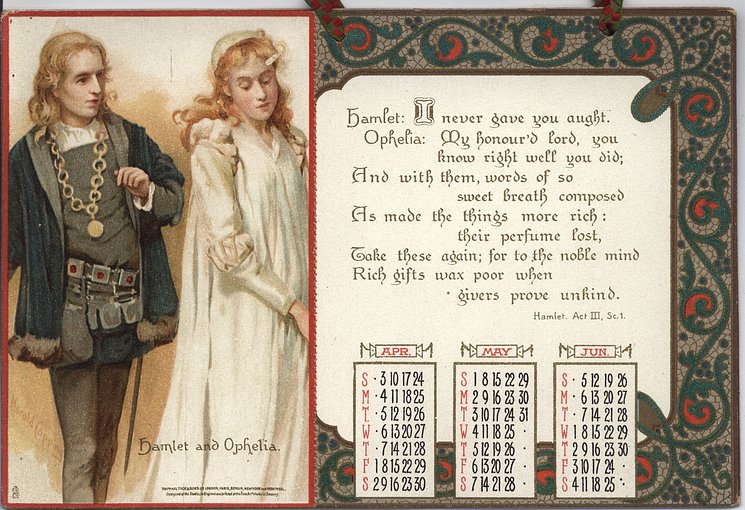 Hamlet: I never gave you aught.
Ophelia: My honour'd lord, you
know right well you did;
And with them, words of so
sweet breath composed
As made the things more rich:
their perfume lost,
Take these again; for to the noble mind
Rich gifts wax poor when
givers prove unkind.
Hamlet. Act III, Sc. 1.
Hamlet and Ophelia.
RAPHAEL TUCK & SONS
APR.
S · 3 10 17 24
M · 4 11 18 25
T · 5 12 19 26
W · 6 13 20 27
T · 7 14 21 28
F 1 8 15 22 29
S 2 9 16 23 30
MAY
S 1 8 15 22 29
M 2 9 16 23 30
T 3 10 17 24 31
W 4 11 18 25 ·
T 5 12 19 26 ·
F 6 13 20 27 ·
S 7 14 21 28 ·
JUN.
S · 5 12 19 26
M · 6 13 20 27
T · 7 14 21 28
W 1 8 15 22 29
T 2 9 16 23 30
F 3 10 17 24 ·
S 4 11 18 25 ·